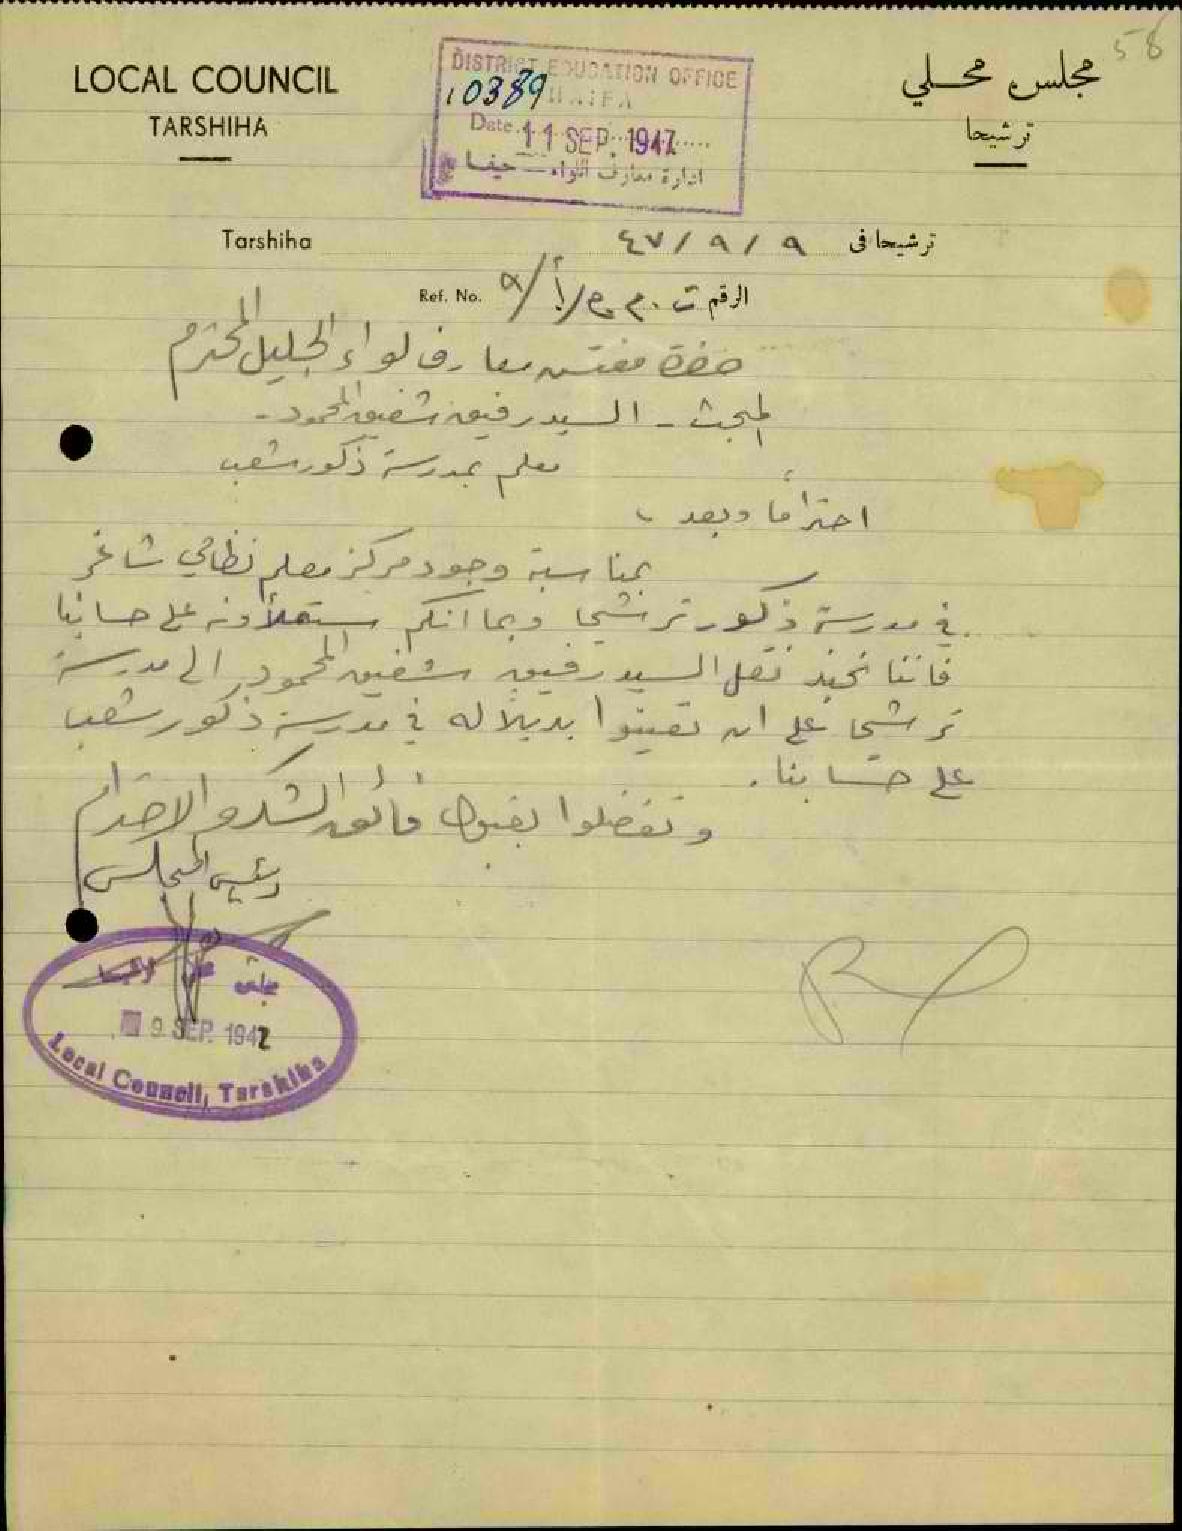 58
LOCAL COUNCIL
TARSHIHA
مجلس محلي
ترشيحا
DISTRICT EDUCATION OFFICE
HAIFA
10389
Date 11 SEP. 1947
ادارة معارف اللواء - حيفا
Tarshiha ترشيحا فى ٩ / ٩ / ٤٧
Ref. No. الرقم ت.م.م/أ/٩
حضرة مفتش معارف لواء الجليل المحترم
المبحث - السيد رفيق شفيق المحمود -
معلم بمدرسة ذكور شعب
احتراماً وبعد ،
بمناسبة وجود مركز معلم نظامي شاغر
في مدرسة ذكور ترشيحا وبما انكم ستملأونه على حسابنا
فاننا نحبذ نقل السيد رفيق شفيق المحمود الى مدرسة
ترشيحا على ان تعينوا بديلاً له في مدرسة ذكور شعب
على حسابنا .
وتفضلوا بقبول فائق الشكر والاحترام
رئيس المجلس
9 SEP. 1947
Local Council, Tarshiha